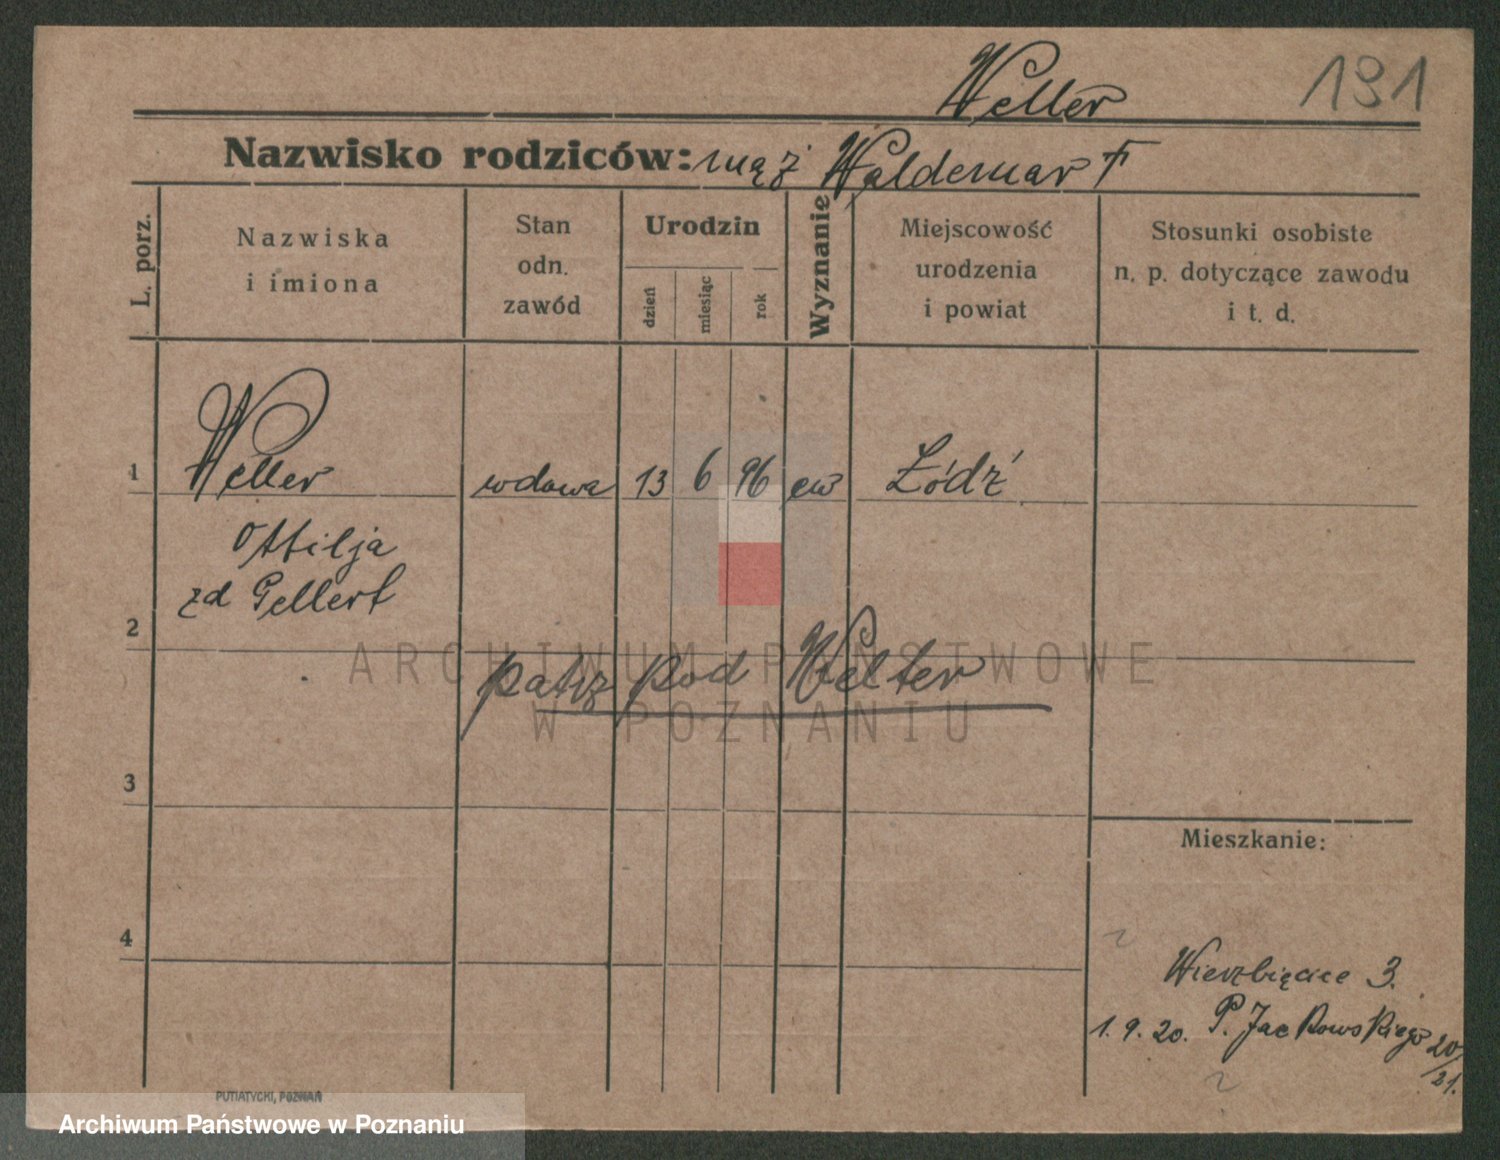 Weller 191
Nazwisko rodziców: mąż Waldemar †
L. porz.
Nazwiska i imiona
Stan odn. zawód
Urodzin
dzień
miesiąc
rok
Wyznanie
Miejscowość urodzenia i powiat
Stosunki osobiste n. p. dotyczące zawodu i t. d.
1 Weller wdowa 13 6 96 ew Łódź
Ottilja
zd Gellert
2
patrz pod Welter
ARCHIWUM PAŃSTWOWE
W POZNANIU
3
Mieszkanie:
4
Wierzbięcice 3.
1.9.20. P. Jackowskiego 20/21.
PUTIATYCKI, POZNAŃ
Archiwum Państwowe w Poznaniu